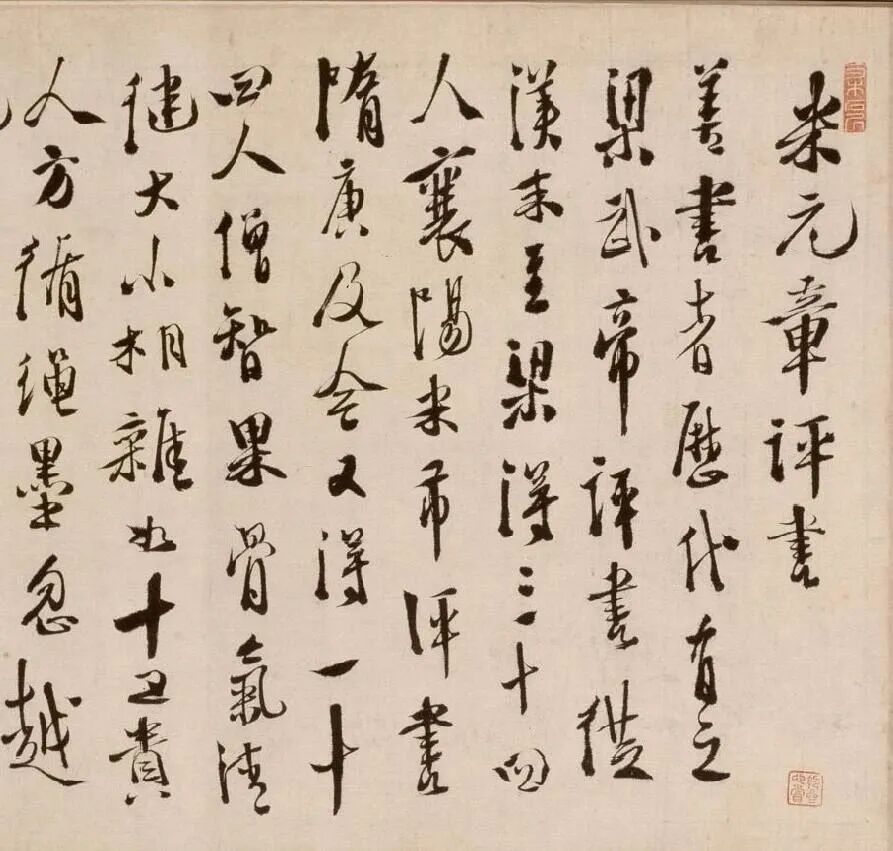 米元章評書
善書者歷代有之
梁武帝評書從
漢末至梁得三十四
人襄陽米芾評書
隋唐及今又得一十
四人僧智果骨氣清
健大小相雜如十五貴
人方循繩墨忽越